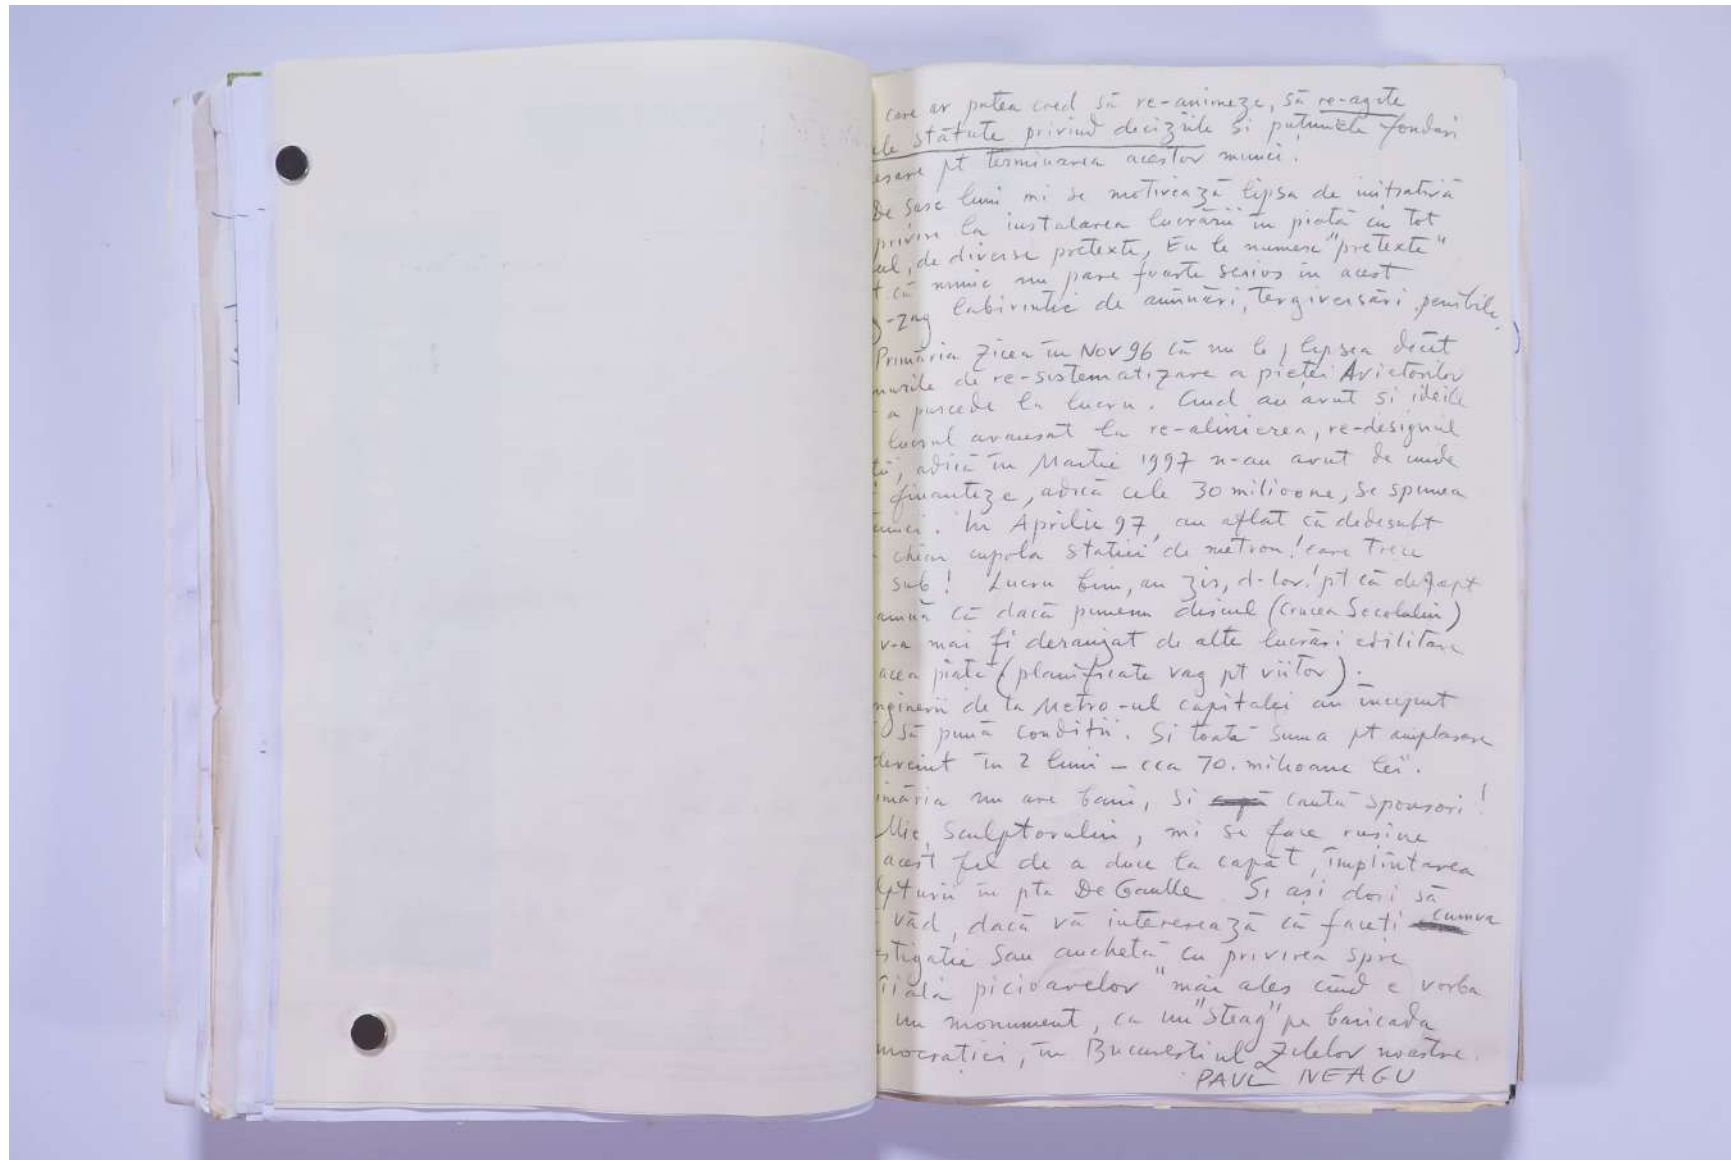 care ar putea cred să re-animeze, să re-agite
ele statute privind deciziile si puținele fonduri
esare pt terminarea acestor munci.
De șase luni mi se motivează lipsa de initiativă
privire la instalarea lucrării în piată cu tot
ul, de diverse pretexte, Eu le numesc "pretexte"
t că nimic nu pare foarte serios in acest
g-zag labirintic de amînări, tergiversări, penibile,
Primăria zicea în Nov 96 că nu le lipsea decît
nurile de re-sistematizare a pieței Aviatorilor
a purcede la lucru. Cînd au avut si ideile
lucrul avansat la re-alinierea, re-designul
tă, adică în Martie 1997 n-au avut de unde
finanteze, adică cele 30 milioane, se spunea
unci. In Aprilie 97, au aflat că dedesubt
chiar cupola statiei de metrou! care trece
sub! Lucru bun, au zis, d-lor! pt că defapt
amnă că dacă punem discul (Crucea Secolului)
v-a mai fi deranjat de alte lucrări edilitare
acea piată (planificate vag pt viitor).
nginerii de la Metro-ul capitalei au început
să pună conditii. Si toată suma pt amplasare
devenit în 2 luni – cca 70. milioane lei.
imăria nu are bani, si caută sponsori!
Mie, sculptorului, mi se face rușine
acest fel de a duce la capăt, împlîntarea
lpturii în pta De Gaulle. Si ași dori să
văd, dacă vă interesează că faceți cumva
stigatie sau anchetă cu privirea spre
iială picioarelor" mai ales cînd e vorba
un monument, ca un "steag" pe baricada
mocrației, în Bucurestiul zilelor noastre.
PAUL NEAGU